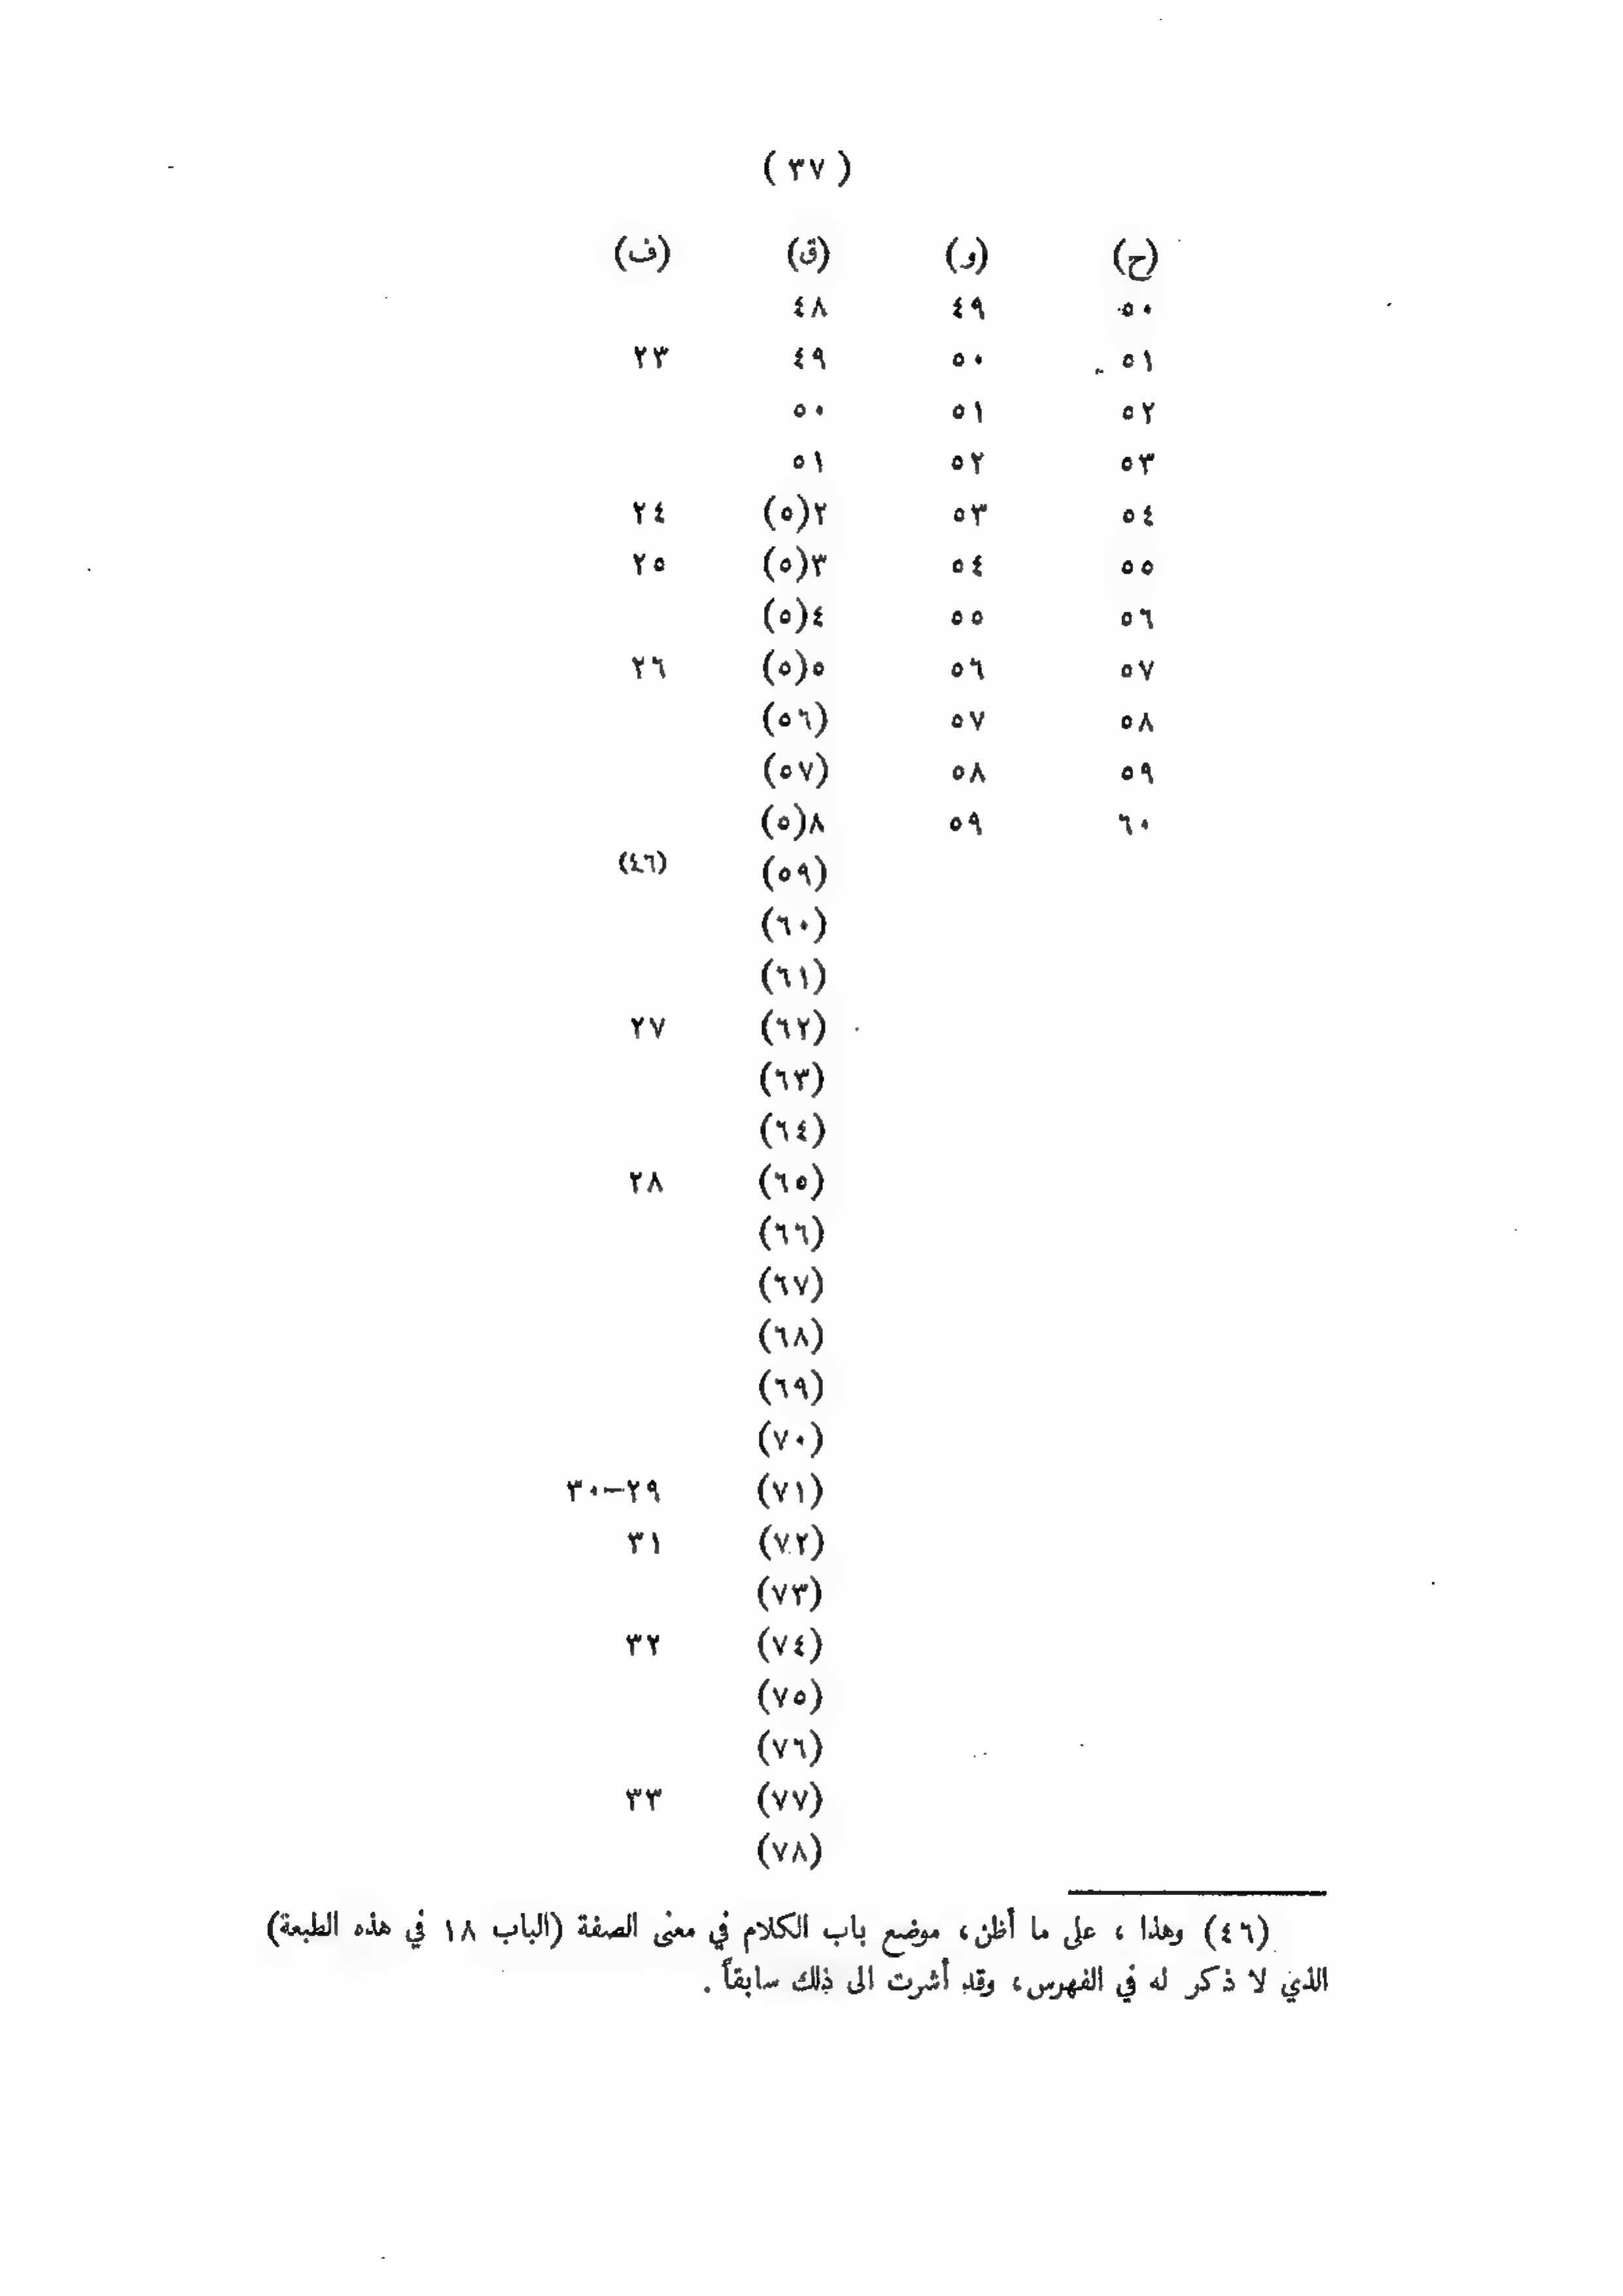 ( ٣٧ )
(ح) (و) (ق) (ف)
٥٠ ٤٩ ٤٨
٥١ ٥٠ ٤٩ ٢٣
٥٢ ٥١ ٥٠
٥٣ ٥٢ ٥١
٥٤ ٥٣ ٢(٥) ٢٤
٥٥ ٥٤ ٣(٥) ٢٥
٥٦ ٥٥ ٤(٥)
٥٧ ٥٦ ٥(٥) ٢٦
٥٨ ٥٧ (٥٦)
٥٩ ٥٨ (٥٧)
٦٠ ٥٩ ٨(٥)
(٥٩) (٤٦)
(٦٠)
(٦١)
(٦٢) ٢٧
(٦٣)
(٦٤)
(٦٥) ٢٨
(٦٦)
(٦٧)
(٦٨)
(٦٩)
(٧٠)
(٧١) ٢٩–٣٠
(٧٢) ٣١
(٧٣)
(٧٤) ٣٢
(٧٥)
(٧٦)
(٧٧) ٣٣
(٧٨)
(٤٦) وهذا ، على ما أظن، موضع باب الكلام في معنى الصفة (الباب ١٨ في هذه الطبعة)
الذي لا ذكر له في الفهرس، وقد أشرت الى ذلك سابقاً .